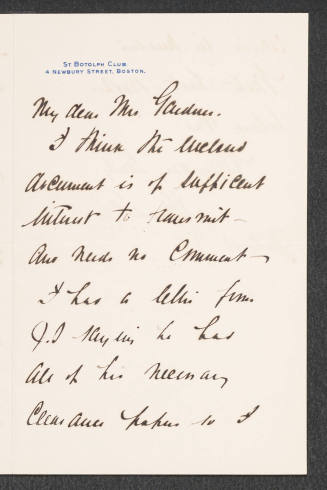 ST BOTOLPH CLUB
4 NEWBURY STREET, BOSTON.
My dear Mrs Gardner.
I think the enclosed
document is of sufficient
interest to transmit —
and needs no comment —
I had a letter from
J.S saying he has
all of his necessary
Clearance papers so I